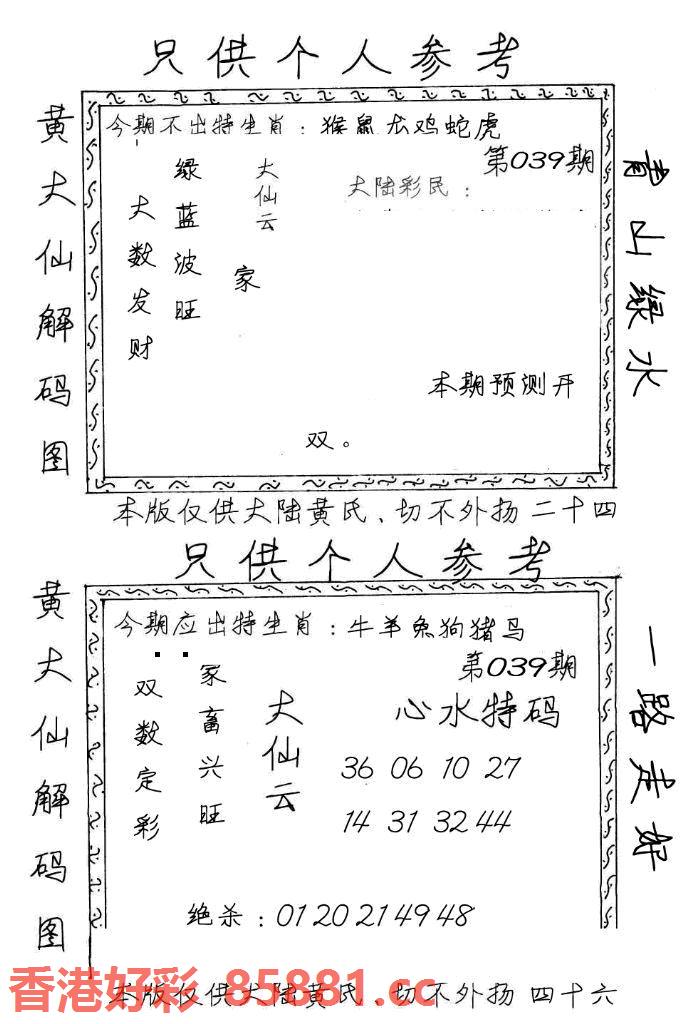 只供个人参考
黄大仙解码图
今期不出特生肖：猴鼠龙鸡蛇虎
第039期
大陆彩民：
大仙云
绿蓝波旺
大数发财
家
本期预测开
双。
青山绿水
本版仅供大陆黄氏、切不外扬二十四
只供个人参考
黄大仙解码图
今期应出特生肖：牛羊兔狗猪马
第039期
双数定彩
家畜兴旺
大仙云
心水特码
36 06 10 27
14 31 32 44
绝杀：01 20 21 49 48
一路走好
本版仅供大陆黄氏、切不外扬 四十六
香港好彩 85881.cc